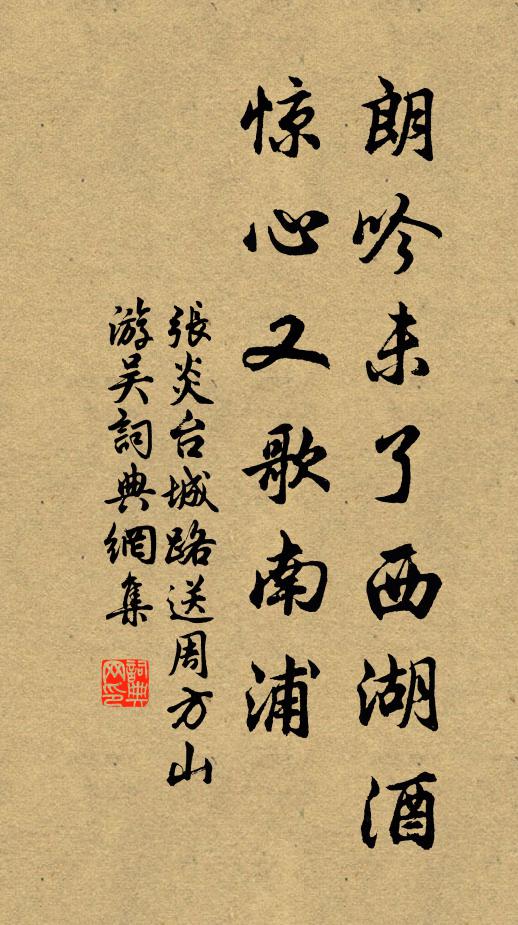 朗吟未了西湖酒
惊心又歌南浦
張炎台城路送周方山
游吴詞典網集
詞典网印